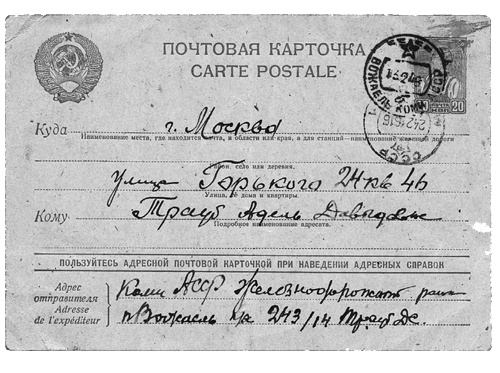 ПОЧТОВАЯ КАРТОЧКА
CARTE POSTALE
20
СССР
Куда г. Москва
Наименование места, где находится почта, и области или края, а для станций наименование железной дороги
Район, село или деревня.
Улица Горького 24 кв 46
Улица, № дома и квартиры.
Кому Трауб Адель Давыдовне
Подробное наименование адресата.
ПОЛЬЗУЙТЕСЬ АДРЕСНОЙ ПОЧТОВОЙ КАРТОЧКОЙ ПРИ НАВЕДЕНИИ АДРЕСНЫХ СПРАВОК
Адрес отправителя
Adresse de l'expéditeur
Коми АССР Железнодорожный район
п Вожаель 243/14 Трауб Дс.